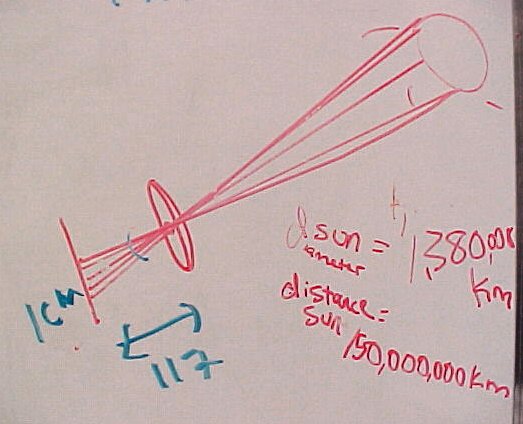 d sun = 1,380,000
iameter
Km
distance =
sun 150,000,000 Km
1cm
117